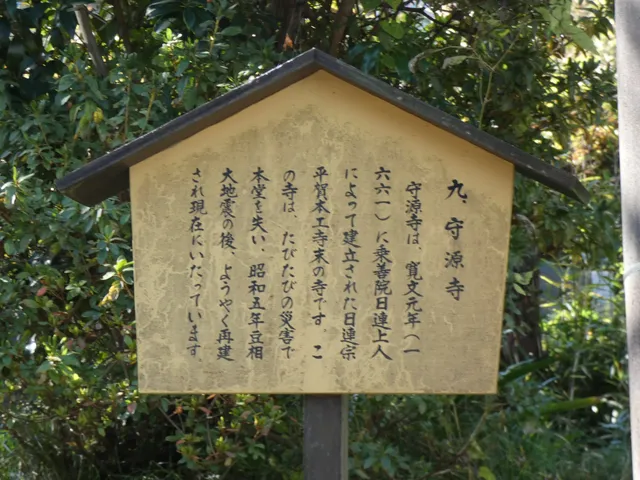 九、守源寺
守源寺は、寛文元年(一
六六一)に乗善院日達上人
によって建立された日蓮宗
平賀本土寺末の寺です。こ
の寺は、たびたびの災害で
本堂を失い、昭和五年豆相
大地震の後、ようやく再建
され現在にいたっています